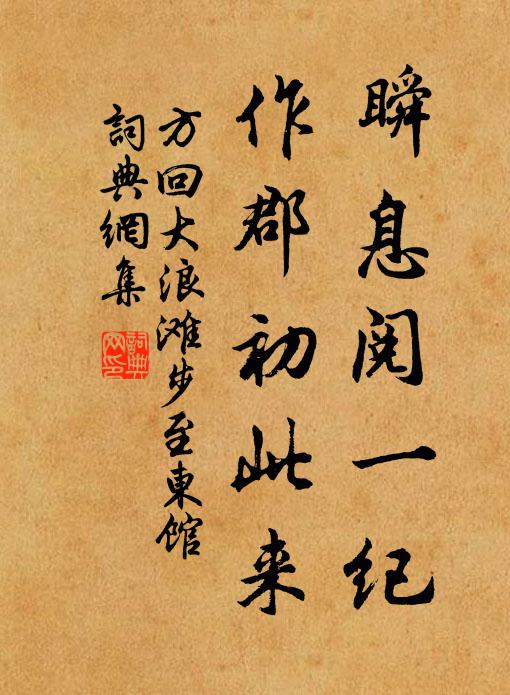 瞬息阅一纪
作郡初此来
方回大浪滩步至東馆
詞典網集
詞典网印